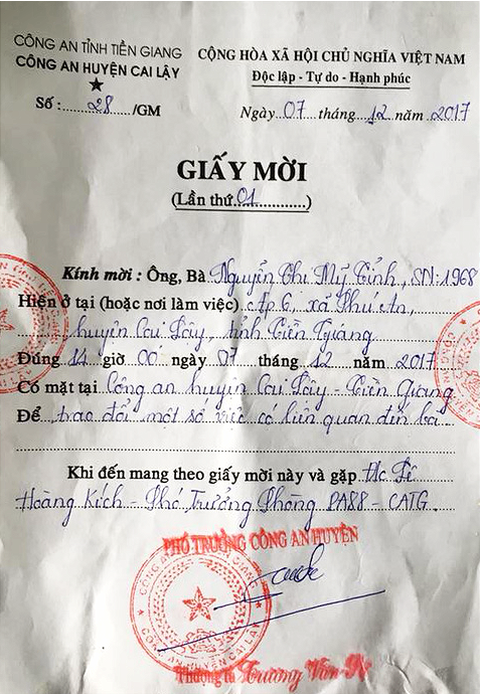 CÔNG AN TỈNH TIỀN GIANG
CÔNG AN HUYỆN CAI LẬY
Số :.......28......../GM
CỘNG HÒA XÃ HỘI CHỦ NGHĨA VIỆT NAM
Độc lập - Tự do - Hạnh phúc
Ngày...07....tháng...12..năm ..2017
GIẤY MỜI
(Lần thứ.01............)
Kính mời : Ông, Bà Nguyễn Thị Mỹ Tỉnh, SN:1968
Hiện ở tại (hoặc nơi làm việc) ấp 6, xã Phú An,
huyện Cai Lậy, tỉnh Tiền Giang
Đúng 14 giờ 00 ngày 07 tháng 12 năm 2017
Có mặt tại Công an huyện Cai Lậy - Tiền Giang
Để trao đổi một số việc có liên quan đến bà
Khi đến mang theo giấy mời này và gặp Đ/c Lê
Hoàng Kích - Phó Trưởng Phòng PA88 - CATG.
PHÓ TRƯỞNG CÔNG AN HUYỆN
CÔNG AN HUYỆN CAI LẬY
Thượng tá Trương Văn